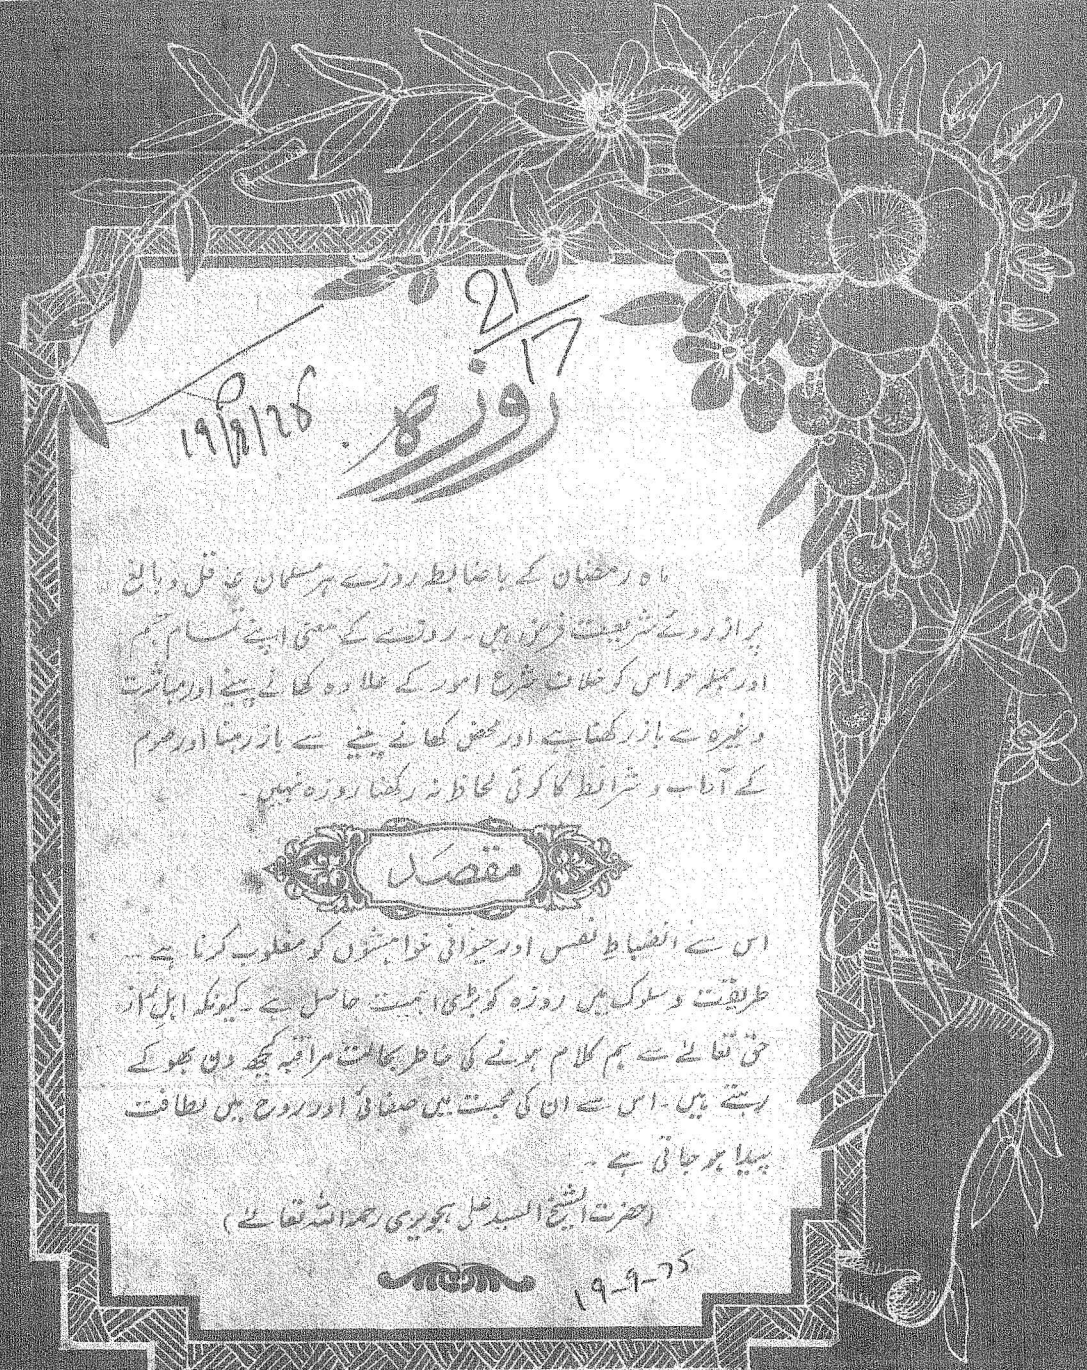 21
17
روزہ
19/8/76
ماہ رمضان کے باضابطہ روزے ہر مسلمان عاقل و بالغ
پر ازروئے شریعت فرض ہیں۔ روزے کے معنی اپنے تمام جسم
اور جملہ حواس کو خلاف شرع امور کے علاوہ کھانے پینے اور مباشرت
وغیرہ سے باز رکھنا ہے اور محض کھانے پینے سے باز رہنا اور صوم
کے آداب و شرائط کا کوئی لحاظ نہ رکھنا روزہ نہیں۔
مقصد
اس سے انضباطِ نفس اور حیوانی خواہشوں کو مغلوب کرنا ہے۔
طریقت و سلوک میں روزہ کو بڑی اہمیت حاصل ہے۔ کیونکہ اہلِ راز
حق تعالےٰ سے ہم کلام ہونے کی خاطر بحالت مراقبہ کچھ دن بھوکے
رہتے ہیں۔ اس سے ان کی محبت میں صفائی اور روح میں لطافت
پیدا ہو جاتی ہے۔
(حضرت الشیخ السید علی ہجویری رحمۃ اللہ تعالےٰ)
19-9-75